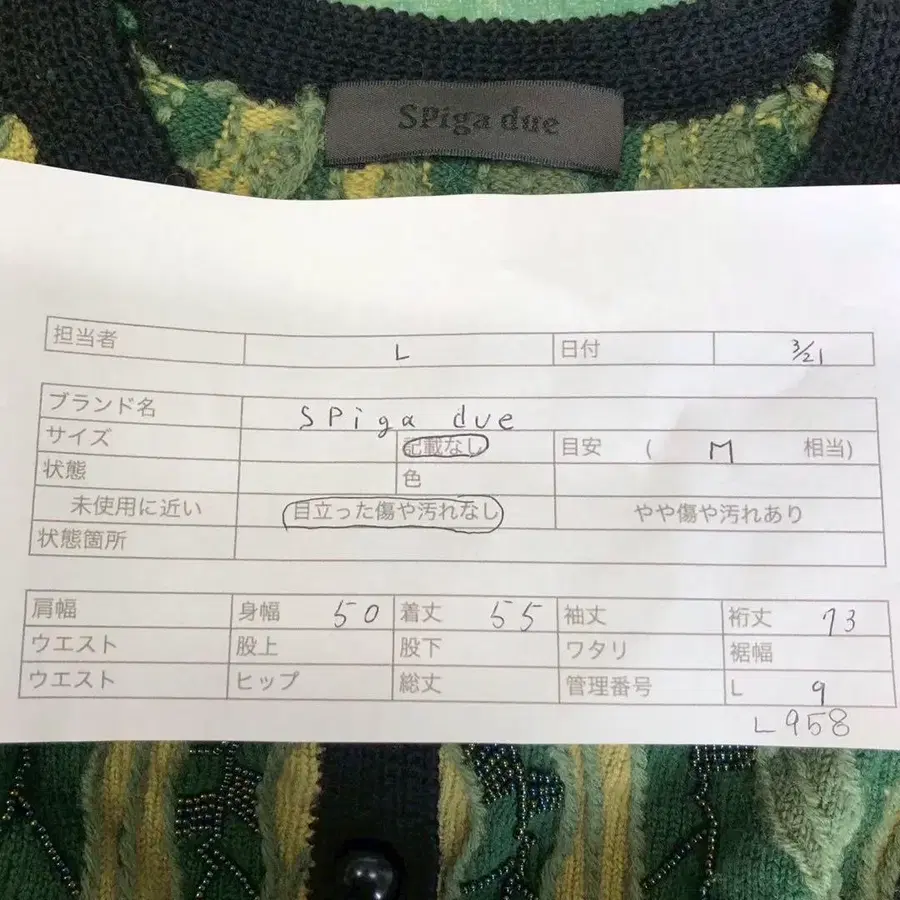 SPiga due
担当者 L 日付 3/21
ブランド名 SPiga due
サイズ 記載なし 目安 ( M 相当)
状態 色
未使用に近い 目立った傷や汚れなし やや傷や汚れあり
状態箇所
肩幅 身幅 50 着丈 55 袖丈 裄丈 73
ウエスト 股上 股下 ワタリ 裾幅
ウエスト ヒップ 総丈 管理番号 L 9
L958